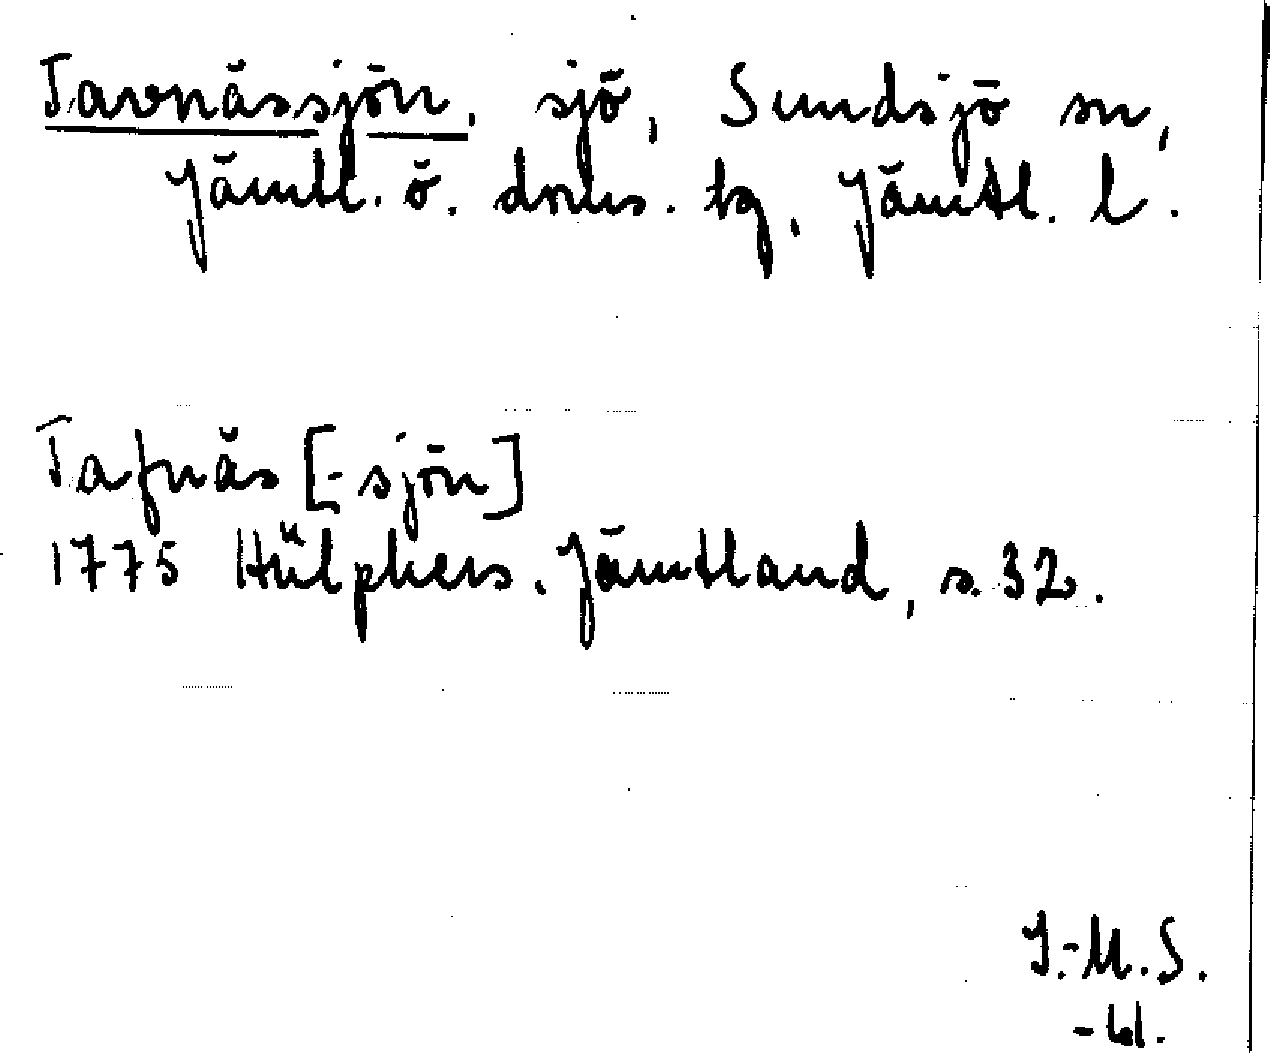 Tavnässjön, sjö, Sundsjö sn,
Jämtl. ö. doms. tg, Jämtl. l.
Tafnäs [-sjön]
1775 Hülphers. Jämtland, s. 32.
I.-M.S.